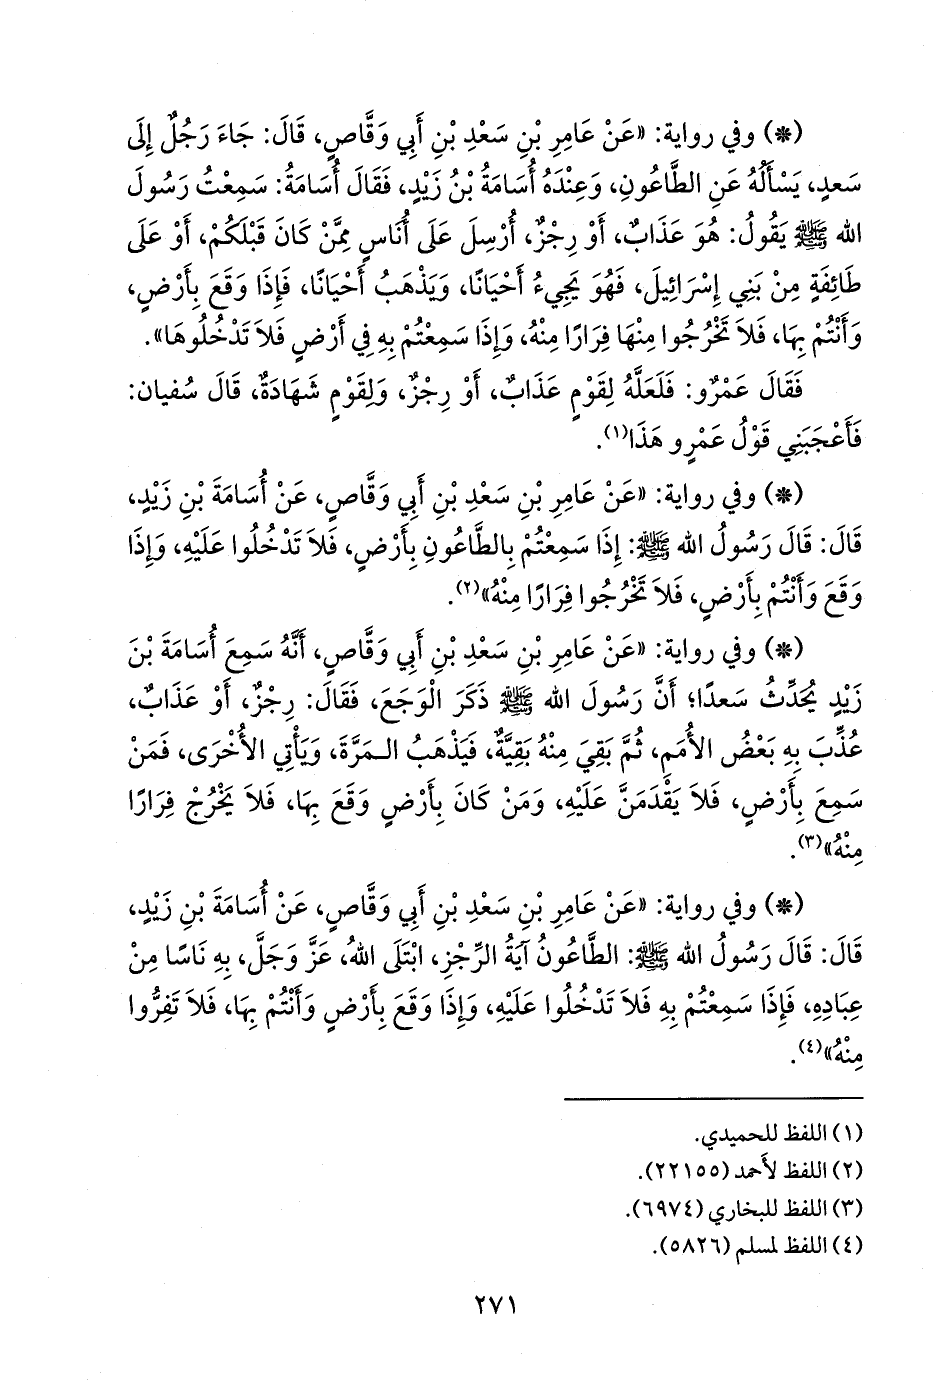 (*) وفي رواية: «عَنْ عَامِرِ بْنِ سَعْدِ بْنِ أَبِي وَقَّاصٍ، قَالَ: جَاءَ رَجُلٌ إِلَى
سَعدٍ، يَسْأَلُهُ عَنِ الطَّاعُونِ، وَعِنْدَهُ أُسَامَةُ بْنُ زَيْدٍ، فَقَالَ أُسَامَةُ: سَمِعْتُ رَسُولَ
الله ﷺ يَقُولُ: هُوَ عَذَابٌ، أَوْ رِجْزٌ، أُرْسِلَ عَلَى أُنَاسٍ مِمَّنْ كَانَ قَبْلَكُمْ، أَوْ عَلَى
طَائِفَةٍ مِنْ بَنِي إِسْرَائِيلَ، فَهُوَ يَجِيءُ أَحْيَانًا، وَيَذْهَبُ أَحْيَانًا، فَإِذَا وَقَعَ بِأَرْضٍ،
وَأَنْتُمْ بِهَا، فَلاَ تَخْرُجُوا مِنْهَا فِرَارًا مِنْهُ، وَإِذَا سَمِعْتُمْ بِهِ فِي أَرْضٍ فَلاَ تَدْخُلُوهَا».
فَقَالَ عَمْرٌو: فَلَعَلَّهُ لِقَوْمٍ عَذَابٌ، أَوْ رِجْزٌ، وَلِقَوْمٍ شَهَادَةٌ، قَالَ سُفيان:
فَأَعْجَبَنِي قَوْلُ عَمْرٍو هَذَا(١).
(*) وفي رواية: «عَنْ عَامِرِ بْنِ سَعْدِ بْنِ أَبِي وَقَّاصٍ، عَنْ أُسَامَةَ بْنِ زَيْدٍ،
قَالَ: قَالَ رَسُولُ الله ﷺ: إِذَا سَمِعْتُمْ بِالطَّاعُونِ بِأَرْضٍ، فَلاَ تَدْخُلُوا عَلَيْهِ، وَإِذَا
وَقَعَ وَأَنْتُمْ بِأَرْضٍ، فَلاَ تَخْرُجُوا فِرَارًا مِنْهُ»(٢).
(*) وفي رواية: «عَنْ عَامِرِ بْنِ سَعْدِ بْنِ أَبِي وَقَّاصٍ، أَنَّهُ سَمِعَ أُسَامَةَ بْنَ
زَيْدٍ يُحَدِّثُ سَعدًا؛ أَنَّ رَسُولَ الله ﷺ ذَكَرَ الْوَجَعَ، فَقَالَ: رِجْزٌ، أَوْ عَذَابٌ،
عُذِّبَ بِهِ بَعْضُ الأُمَمِ، ثُمَّ بَقِيَ مِنْهُ بَقِيَّةٌ، فَيَذْهَبُ الـمَرَّةَ، وَيَأْتِي الأُخْرَى، فَمَنْ
سَمِعَ بِأَرْضٍ، فَلاَ يَقْدَمَنَّ عَلَيْهِ، وَمَنْ كَانَ بِأَرْضٍ وَقَعَ بِهَا، فَلاَ يَخْرُجْ فِرَارًا
مِنْهُ»(٣).
(*) وفي رواية: «عَنْ عَامِرِ بْنِ سَعْدِ بْنِ أَبِي وَقَّاصٍ، عَنْ أُسَامَةَ بْنِ زَيْدٍ،
قَالَ: قَالَ رَسُولُ الله ﷺ: الطَّاعُونُ آيَةُ الرِّجْزِ، ابْتَلَى اللهُ، عَزَّ وَجَلَّ، بِهِ نَاسًا مِنْ
عِبَادِهِ، فَإِذَا سَمِعْتُمْ بِهِ فَلاَ تَدْخُلُوا عَلَيْهِ، وَإِذَا وَقَعَ بِأَرْضٍ وَأَنْتُمْ بِهَا، فَلاَ تَفِرُّوا
مِنْهُ»(٤).
(١) اللفظ للحميدي.
(٢) اللفظ لأَحمد (٢٢١٥٥).
(٣) اللفظ للبخاري (٦٩٧٤).
(٤) اللفظ لمسلم (٥٨٢٦).
٢٧١